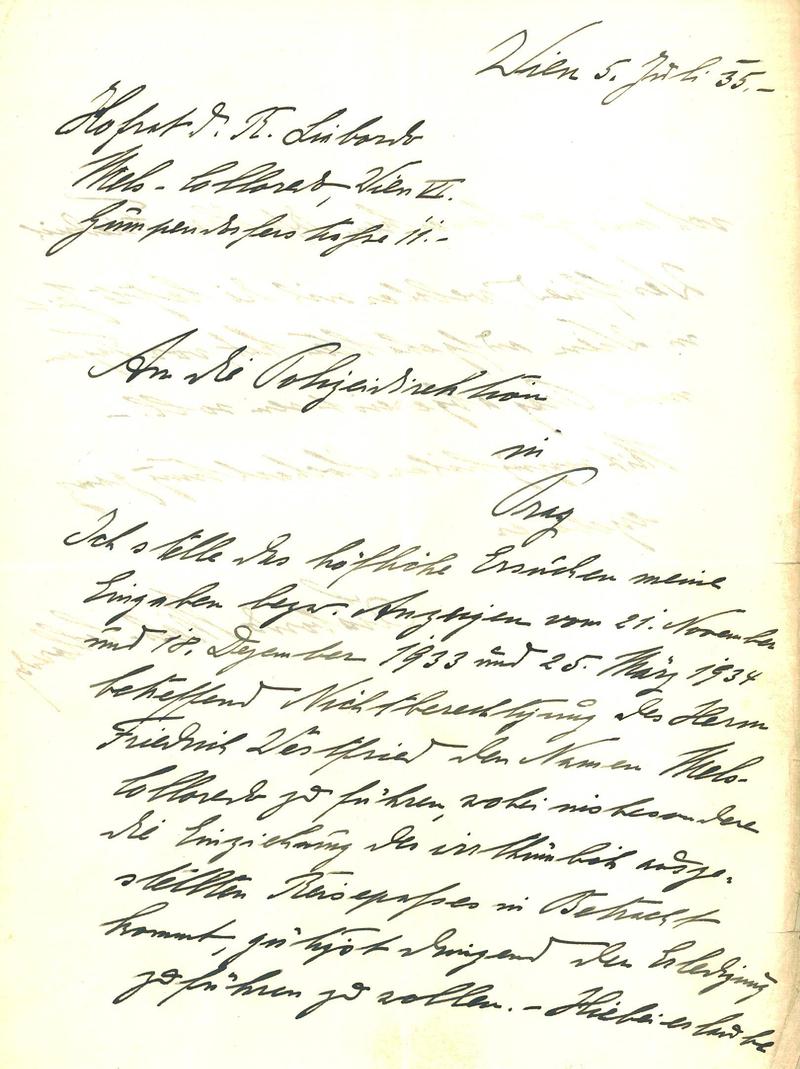 Wien 5. Juli 35.–
Hofrat Dr. R.
Mels-Colloredo, Wien VI.
Gumpendorferstraße 11.–
An die Polizeidirektion
in
Prag
Ich stelle das höfliche Ersuchen meine
Eingaben bezw. Anzeigen vom 21. November
und 18. Dezember 1933 und 25. März 1934
betreffend Nichtberechtigung des Herrn
Friedrich Westfried den Namen Mels-
Colloredo zu führen, wobei insbesondere
die Einziehung des irrtümlich ausge-
stellten Reisepasses in Betracht
kommt, gütigst dringend der Erledigung
zuführen zu wollen. – Hiebei erlaube